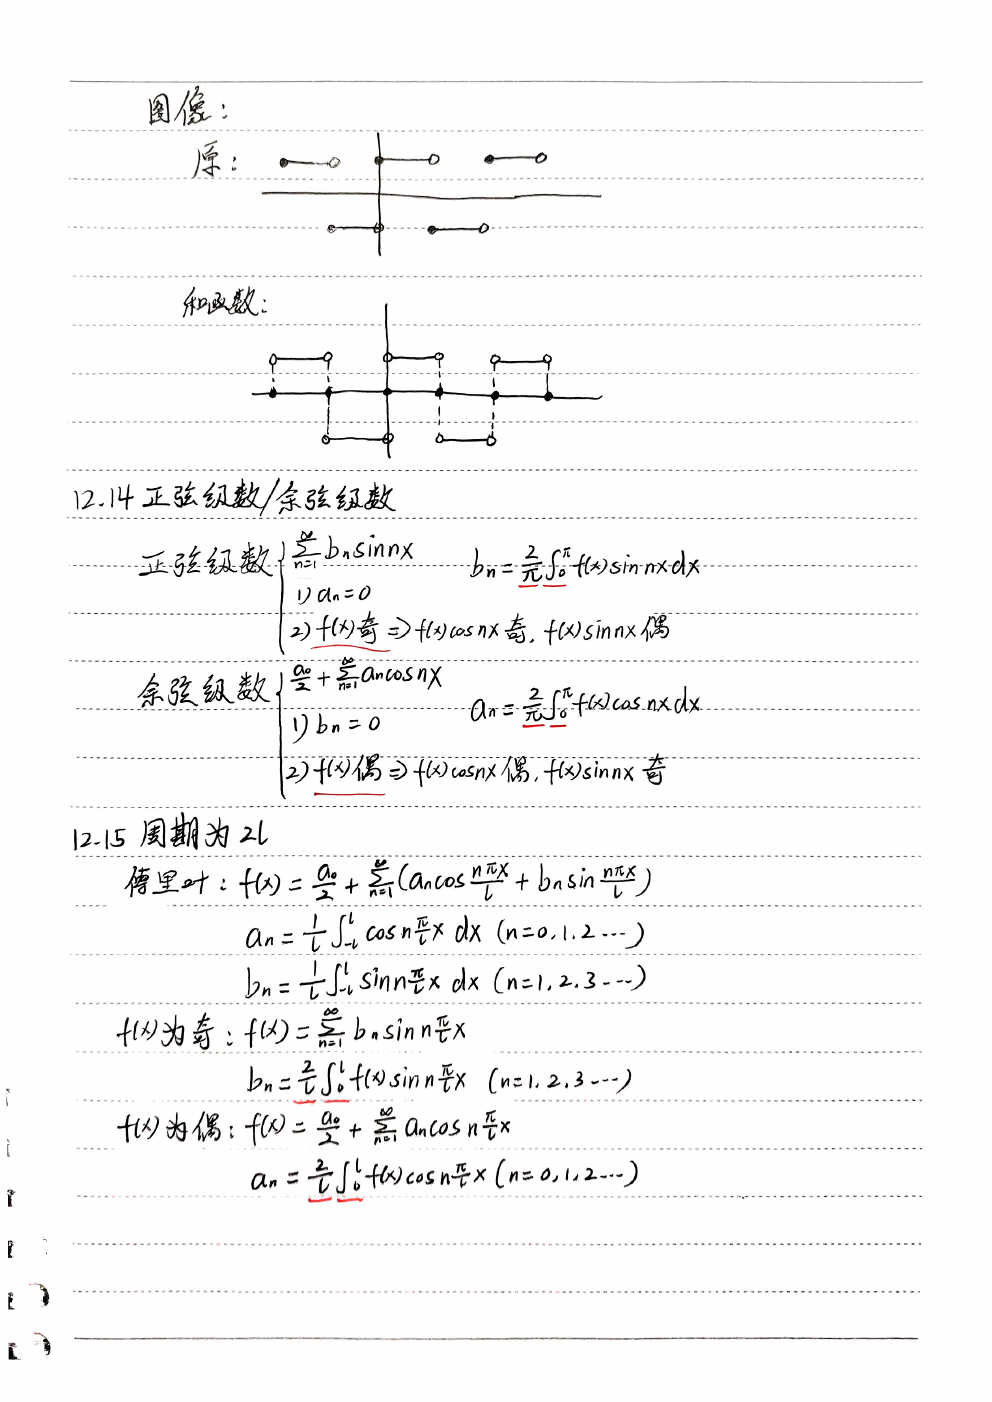 图像：
原：
和函数：
12.14 正弦级数/余弦级数
正弦级数 { ∑_{n=1}^{∞} bn sin nx    bn = 2/π ∫_0^π f(x) sin nx dx
1) an = 0
2) f(x)奇 => f(x)cos nx 奇, f(x)sin nx 偶
余弦级数 { a0/2 + ∑_{n=1}^{∞} an cos nx    an = 2/π ∫_0^π f(x) cos nx dx
1) bn = 0
2) f(x)偶 => f(x)cos nx 偶, f(x)sin nx 奇
12.15 周期为 2l
傅里叶：f(x) = a0/2 + ∑_{n=1}^{∞} (an cos nπx/l + bn sin nπx/l)
an = 1/l ∫_{-l}^{l} cos n π/l x dx (n=0,1,2···)
bn = 1/l ∫_{-l}^{l} sin n π/l x dx (n=1,2,3···)
f(x)为奇：f(x) = ∑_{n=1}^{∞} bn sin n π/l x
bn = 2/l ∫_0^l f(x) sin n π/l x (n=1,2,3···)
f(x)为偶：f(x) = a0/2 + ∑_{n=1}^{∞} an cos n π/l x
an = 2/l ∫_0^l f(x) cos n π/l x (n=0,1,2···)